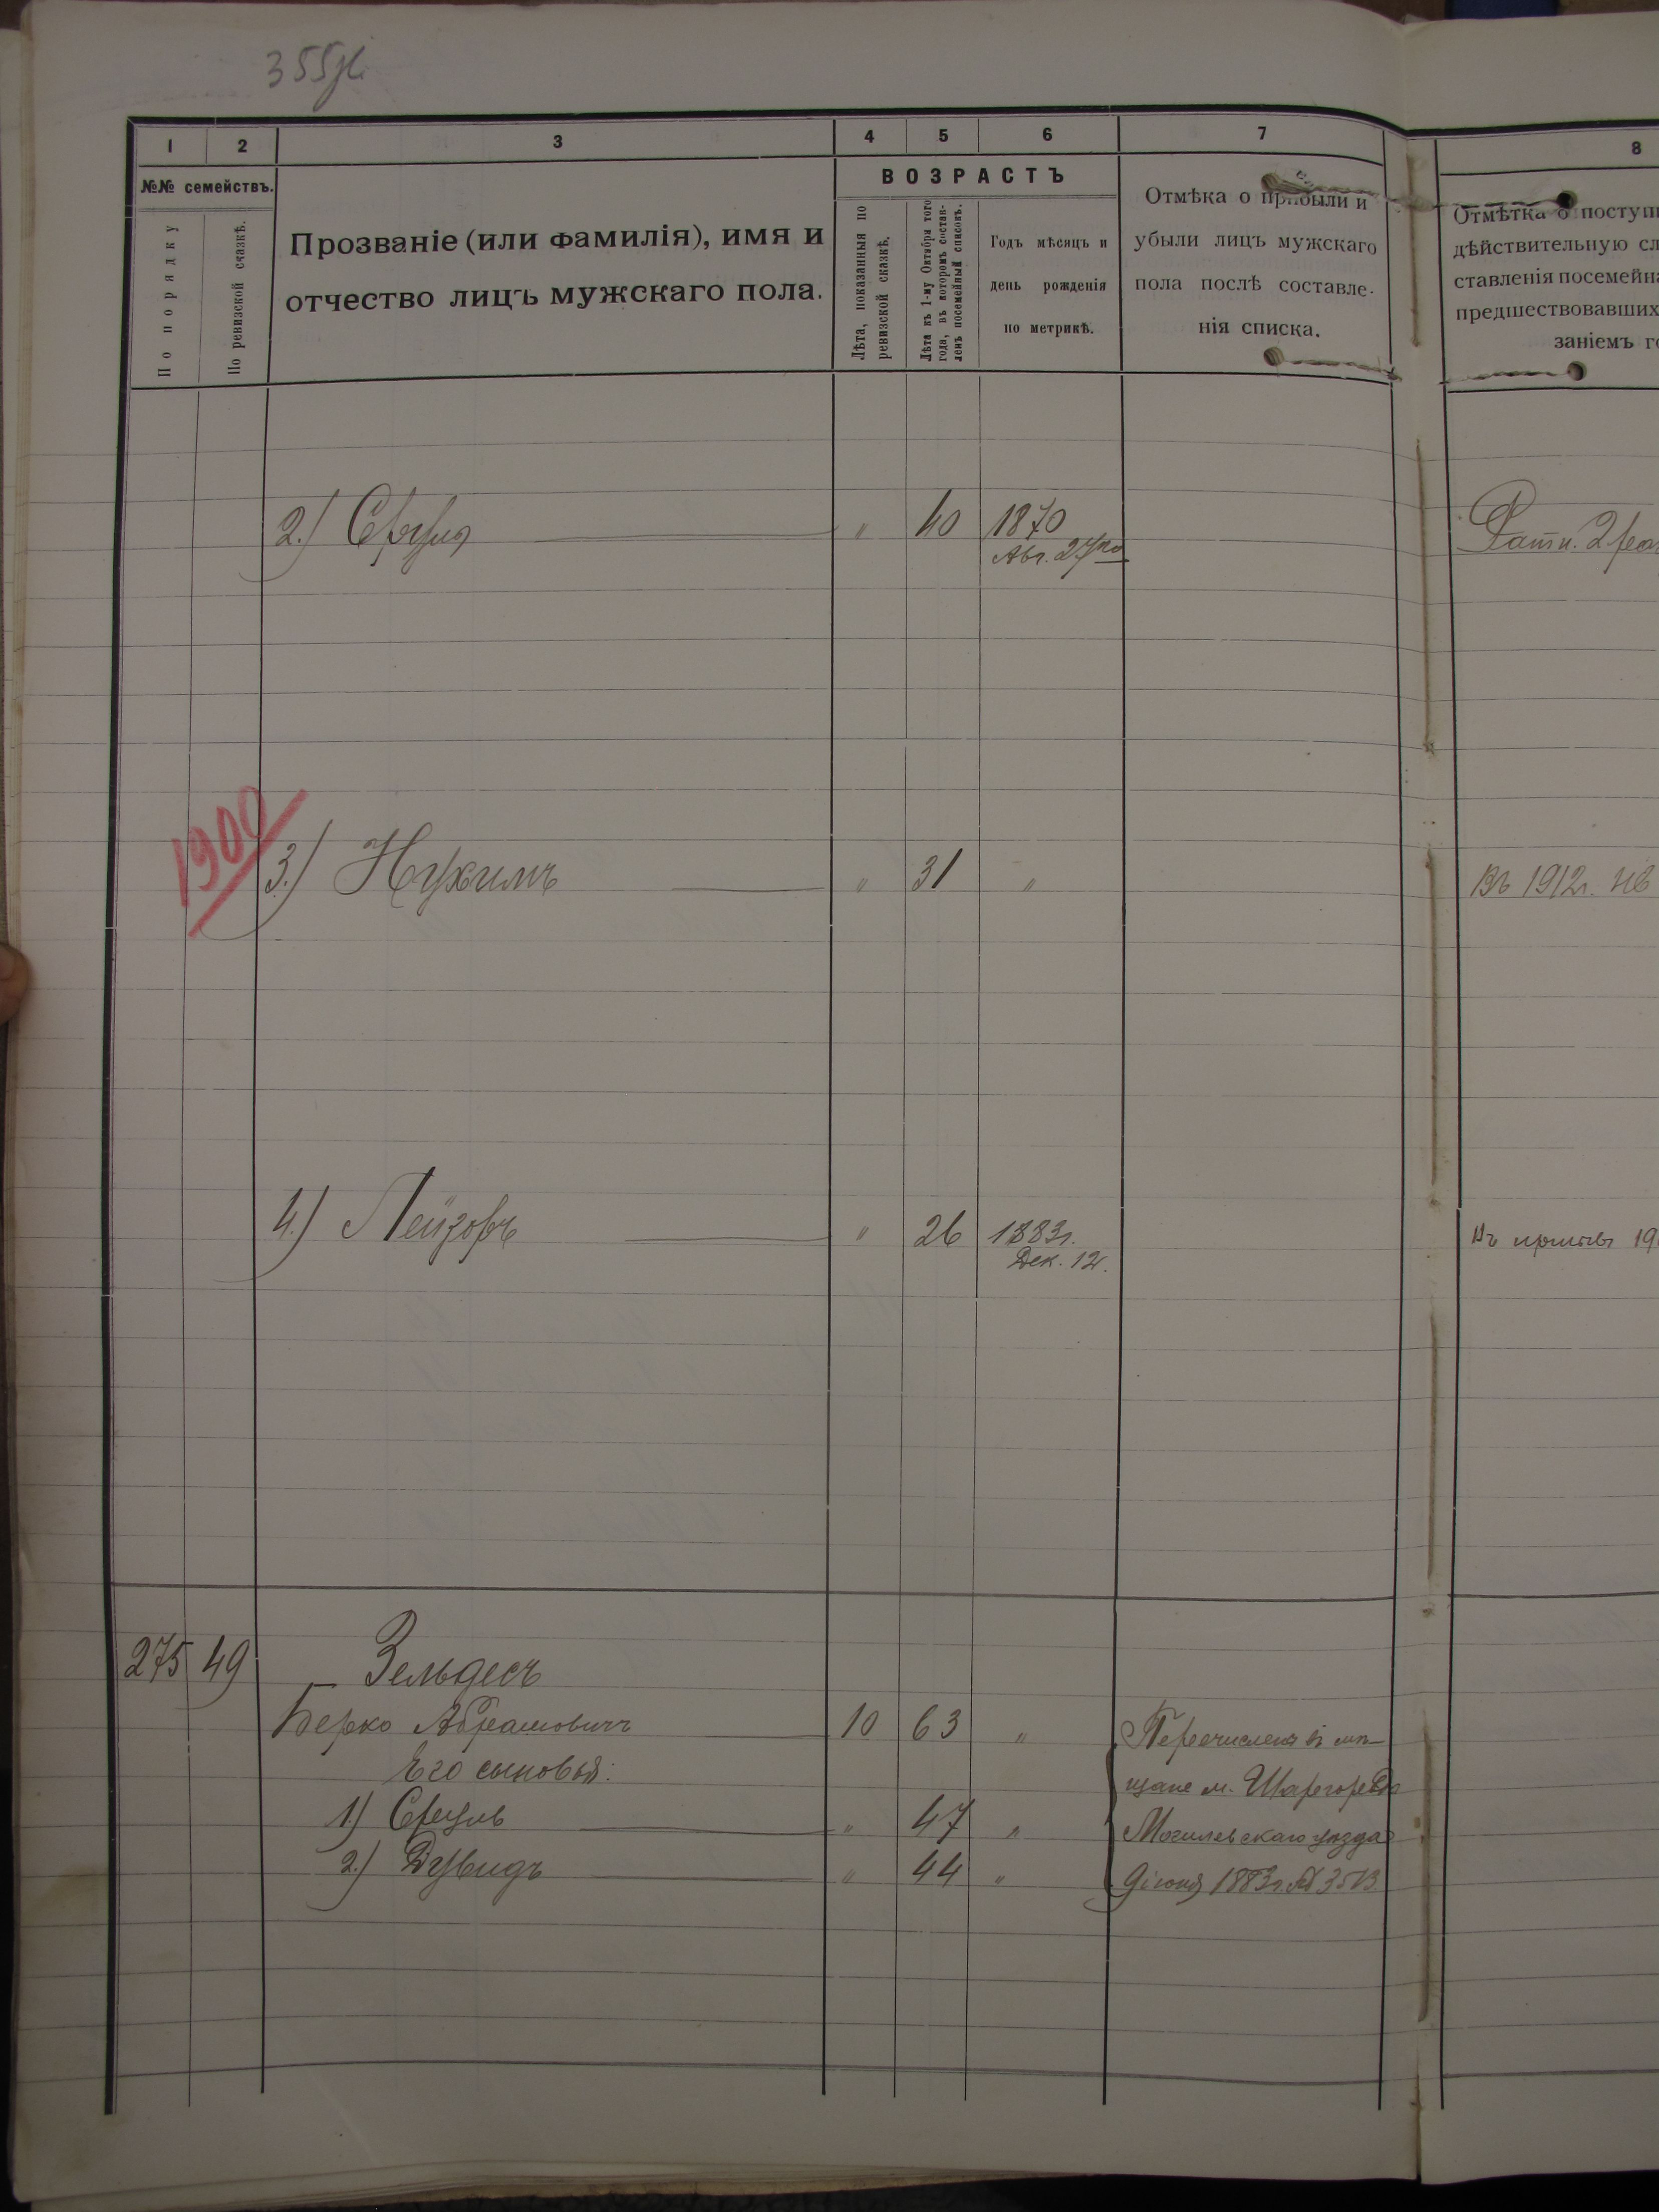 355
1 2 3 4 5 6 7 8
№№ семействъ.
По порядку
По ревизской сказкѣ.
Прозваніе (или фамилія), имя и
отчество лицъ мужскаго пола.
ВОЗРАСТЪ
Лѣта, показанныя по
ревизской сказкѣ.
Лѣта къ 1-му Октября того
года, въ которомъ состав-
ленъ посемейный списокъ.
Годъ мѣсяцъ и
день рожденія
по метрикѣ.
Отмѣка о прибыли и
убыли лицъ мужскаго
пола послѣ составле-
нія списка.
Отмѣтка о поступ
дѣйствительную сл
ставленія посемейна
предшествовавших
заніемъ го
2.) Сруль " 40 1870
Авг. 27го
Ратн. 2 раз
1900
3.) Нухимъ " 31 " Въ 1912г. не
4.) Лейзоръ " 26 1883г.
Дек. 12.
Въ призывъ 19
275 49 Зельдесъ
Берко Абрамовичъ 10 63 " Перечисленъ въ мѣ-
Его сыновья:
щане м. Шаргорода
1) Сруль " 47 " Могилевскаго уѣзда
2.) Дувидъ " 44 " 9 іюня 1883г. № 3513